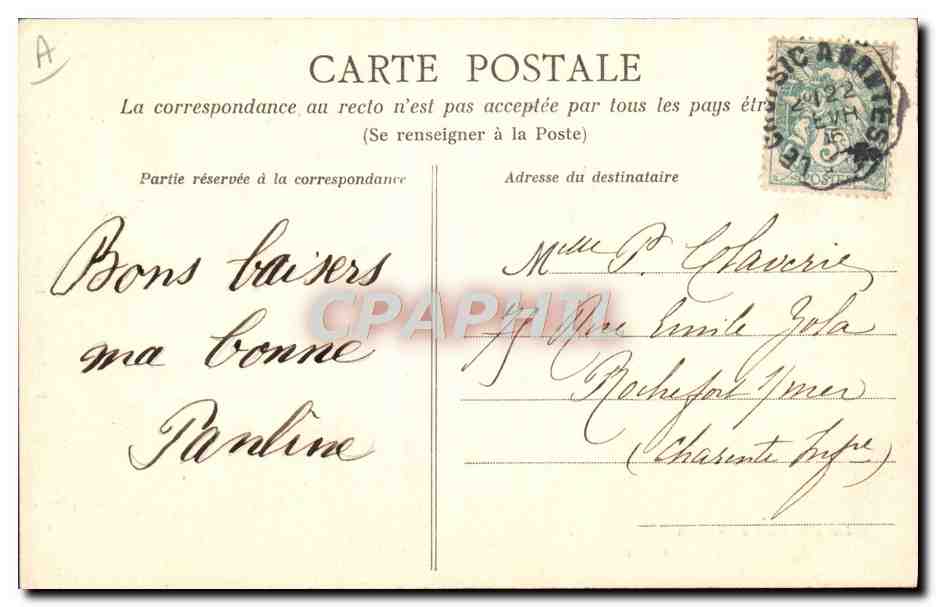 A
CARTE POSTALE
La correspondance au recto n'est pas acceptée par tous les pays étr
(Se renseigner à la Poste)
LE CROISIC A NANTES
22
FEVR
POSTES
Partie réservée à la correspondance
Adresse du destinataire
Bons baisers
ma bonne
Pauline
Melle P. Claverie
Rue Emile Zola
Rochefort s/mer
(Charente Infre)
CPAPHIL